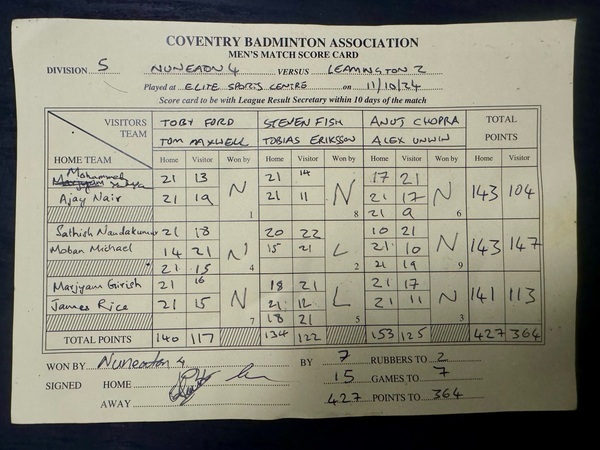 COVENTRY BADMINTON ASSOCIATION
MEN'S MATCH SCORE CARD
DIVISION 5 NUNEATON 4 VERSUS LEAMINGTON 2
Played at ELITE SPORTS CENTRE on 11/10/24
Score card to be with League Result Secretary within 10 days of the match
VISITORS TEAM TOBY FORD STEVEN FISH ANUJ CHOPRA TOTAL POINTS
TOM MAXWELL TOBIAS ERIKSSON ALEX UNWIN
HOME TEAM Home Visitor Won by Home Visitor Won by Home Visitor Won by Home Visitor
Mohammed 21 13 N 21 14 N 17 21 N 143 104
Ajay Nair 21 19 21 11 21 17
1 8 21 9 6
Sathish Nandakumar 21 18 N 20 22 L 10 21 N 143 147
Moban Michael 14 21 15 21 21 10
21 15 4 2 21 19 9
Marjyam Girish 21 16 N 18 21 L 21 17 N 141 113
James Rice 21 15 21 12 21 11
7 18 21 5 3
TOTAL POINTS 140 117 134 122 153 125 427 364
WON BY Nuneaton 4 BY 7 RUBBERS TO 2
SIGNED HOME 15 GAMES TO 7
AWAY 427 POINTS TO 364